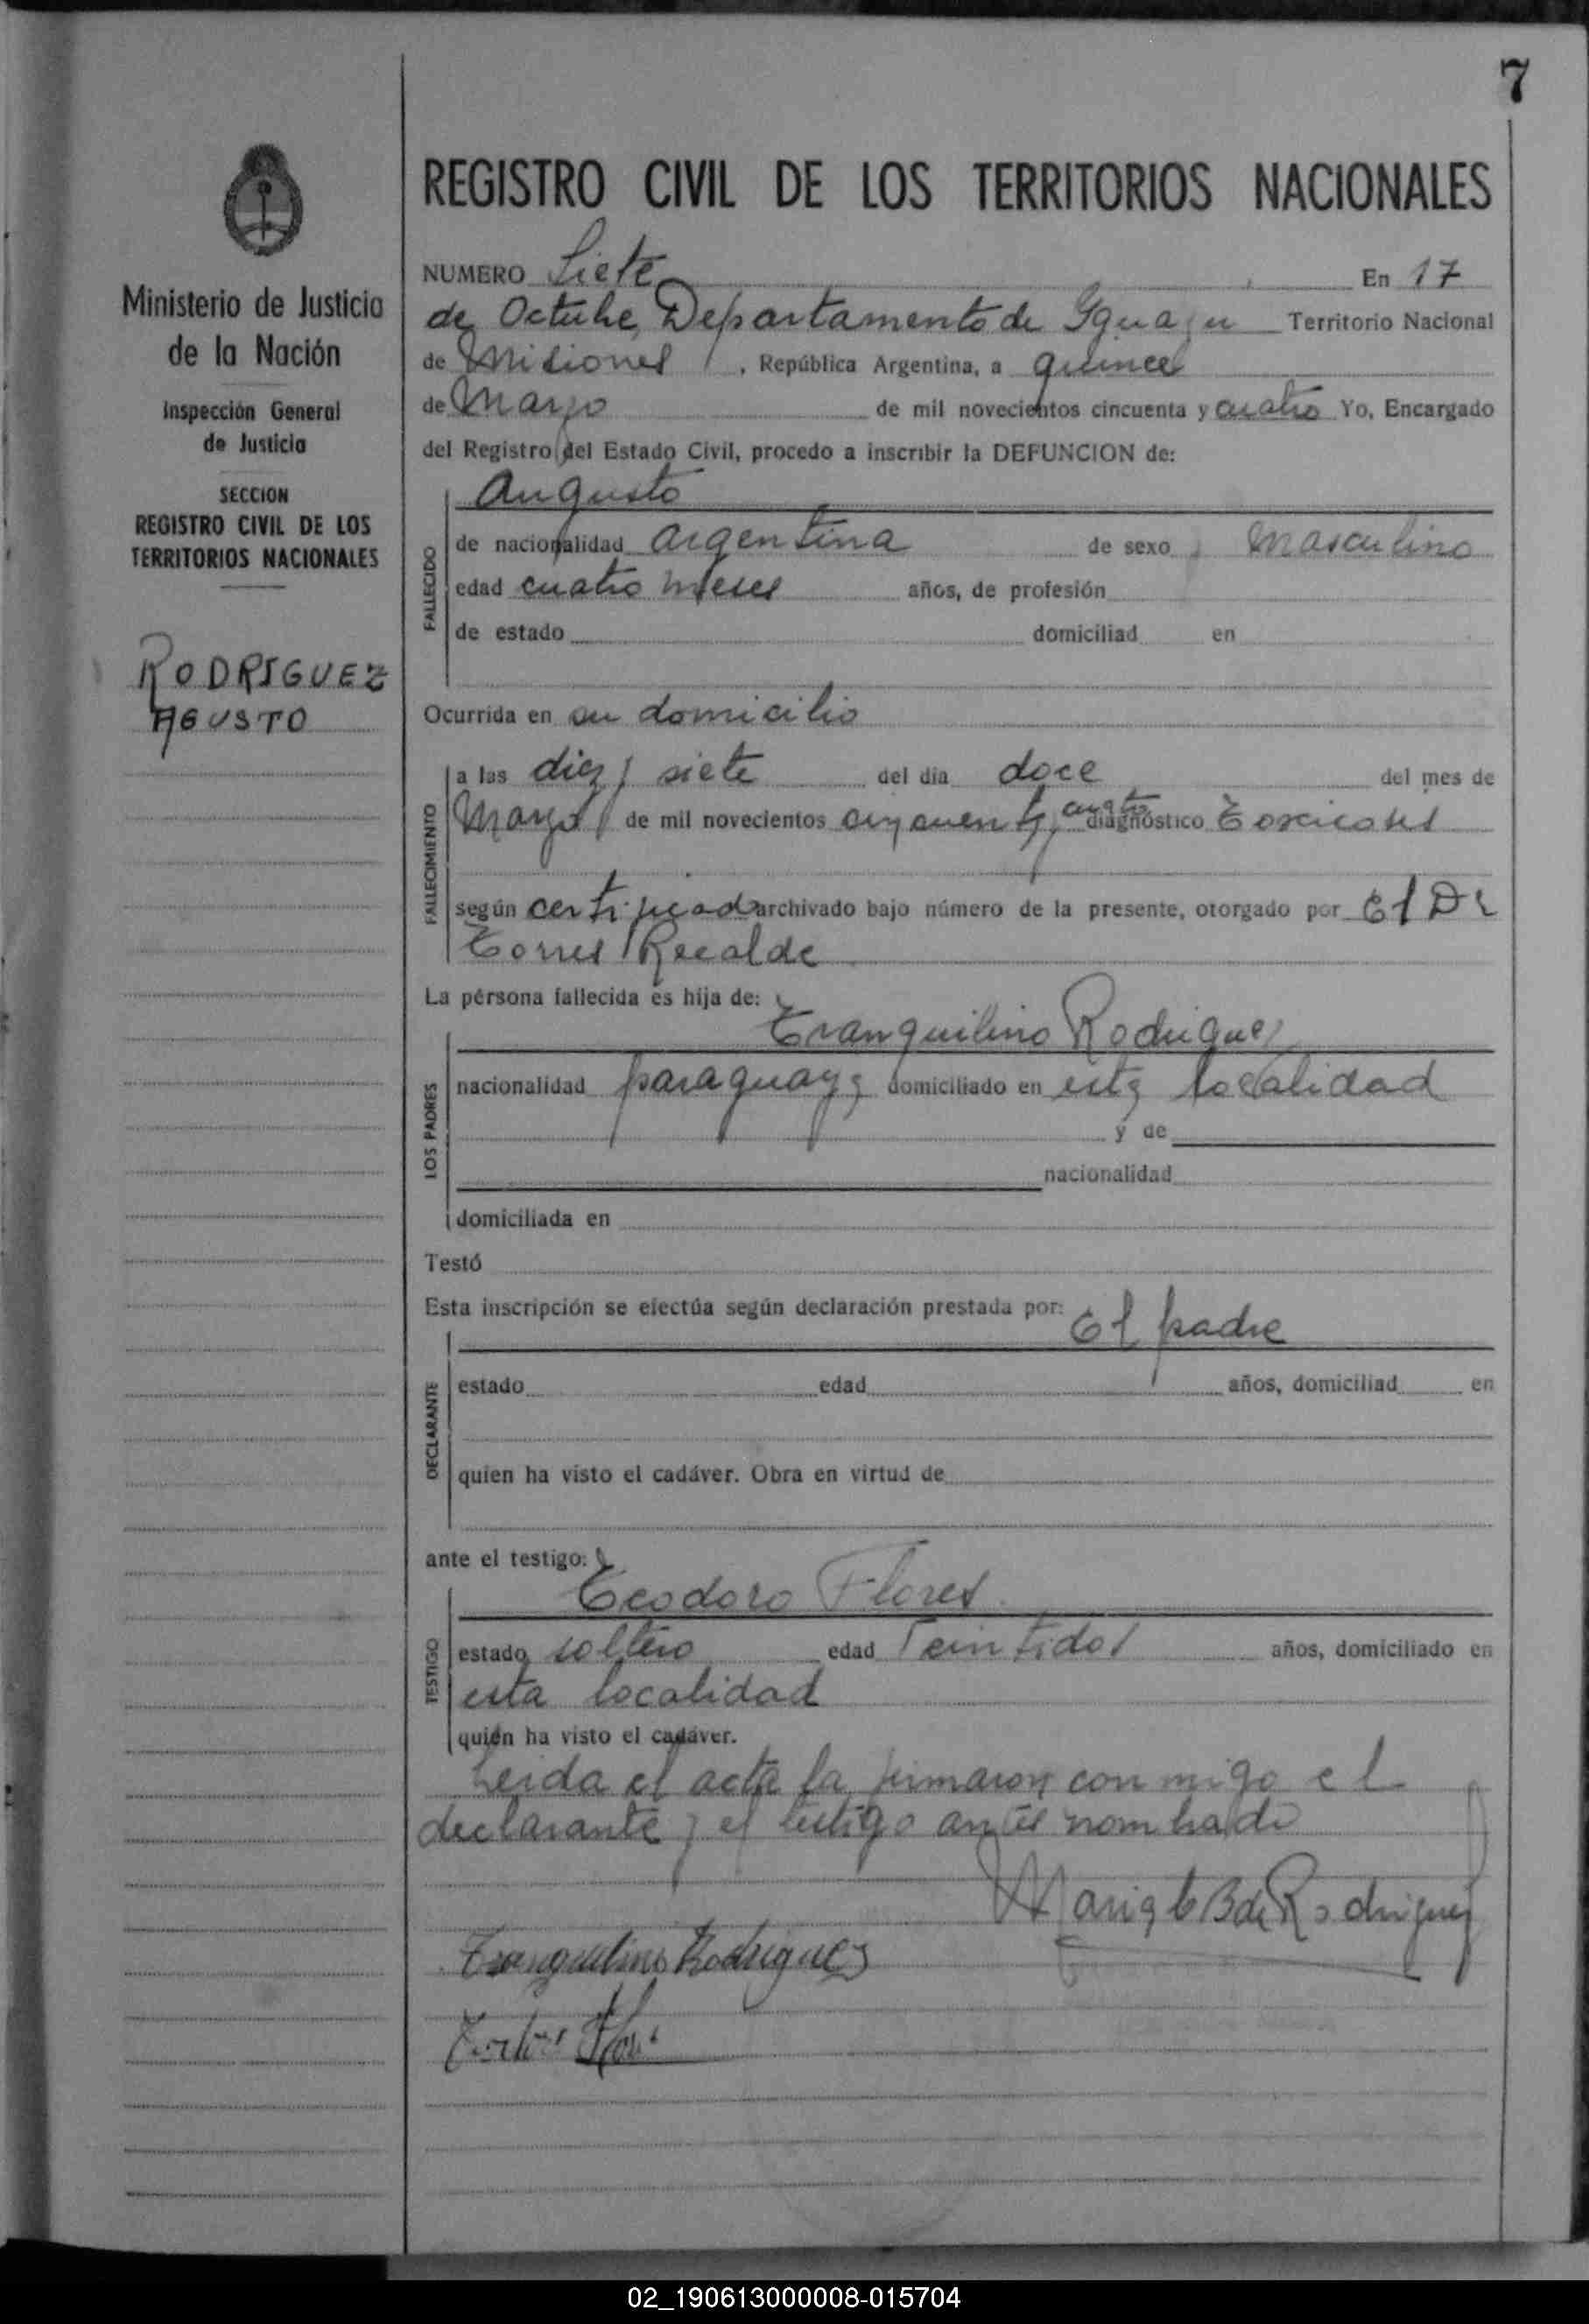 7
Ministerio de Justicia
de la Nación
Inspección General
de Justicia
SECCION
REGISTRO CIVIL DE LOS
TERRITORIOS NACIONALES
RODRIGUEZ
AGUSTO
REGISTRO CIVIL DE LOS TERRITORIOS NACIONALES
NUMERO Siete, En 17
de Octubre Departamento de Iguazu Territorio Nacional
de Misiones, República Argentina, a quince
de Marzo de mil novecientos cincuenta y cuatro Yo, Encargado
del Registro del Estado Civil, procedo a inscribir la DEFUNCION de:
FALLECIDO
Augusto
de nacionalidad argentina de sexo masculino
edad cuatro meses años, de profesión
de estado domiciliad en
Ocurrida en su domicilio
FALLECIMIENTO
a las diez y siete del día doce del mes de
Marzo de mil novecientos cincuenta y cuatro diagnóstico Toxicosis
según certificado archivado bajo número de la presente, otorgado por El Dr
Torres Recalde
La persona fallecida es hija de:
LOS PADRES
Tranquilino Rodriguez
nacionalidad paraguaya domiciliado en esta localidad
y de
nacionalidad
domiciliada en
Testó
Esta inscripción se efectúa según declaración prestada por:
DECLARANTE
El padre
estado edad años, domiciliad en
quien ha visto el cadáver. Obra en virtud de
ante el testigo:
TESTIGO
Teodoro Flores
estado soltero edad veintidos años, domiciliado en
esta localidad
quién ha visto el cadáver.
Leida el acta la firmaron conmigo el
declarante y el testigo antes nombrado
B de Rodriguez
Tranquilino Rodriguez
02_190613000008-015704